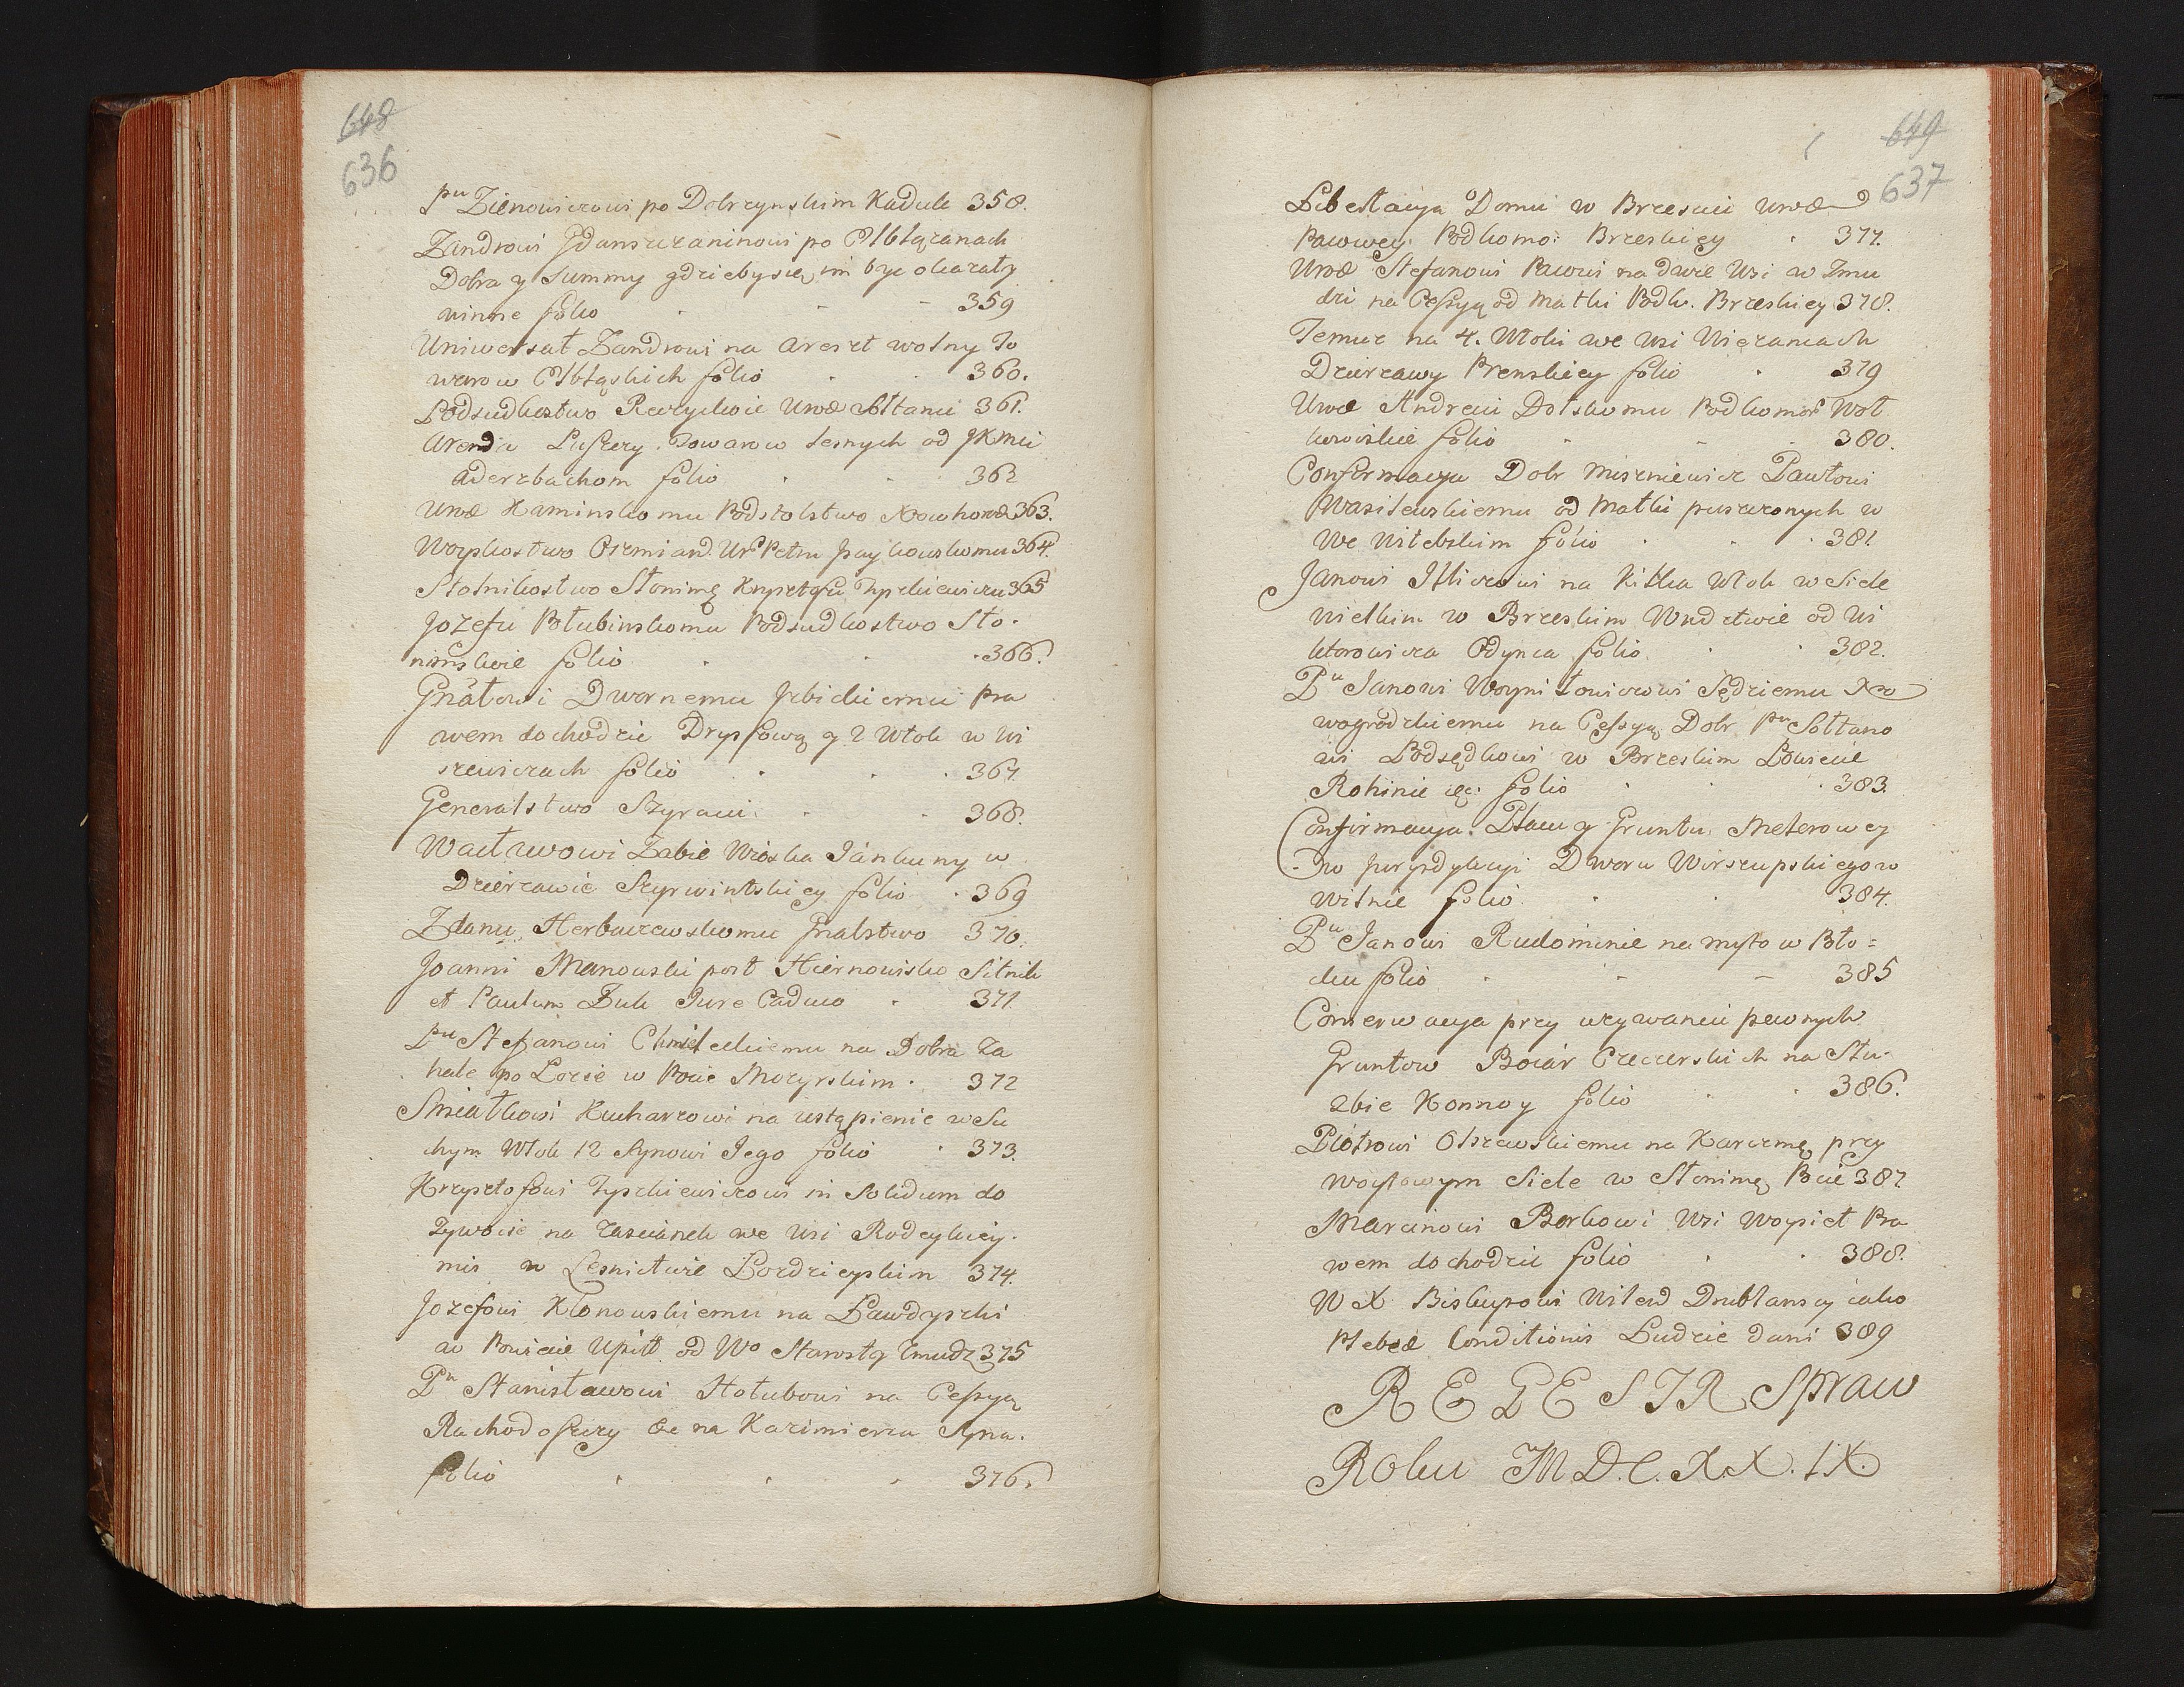 648
636
Pu Zienowiczowi po Dobrzynskim Kaduk 358.
Zandrowi Gdanszczaninowi po Elblązanach
Dobra y Summy gdziebysię im byc okazały
winne folio - 359
Uniwersał Zandrowi na Areszt wolny To
warow Elbląskich folio 360.
Podsudkostwo Rzeczyckie Urod Sołtanu 361.
Arenda Puszczy Towarow lesnych od JKMci
Aderzbachom folio 362
Urod Kaminskomu Podstolstwo Nowhorod 363.
Woyskostwo Oszmiand. Urd Petru 364.
Stolnikostwo Słonimę Krysztofu Tyszkiewiczu 365
Jozefu Połubinskomu Podsudkostwo Sło-
nimskoie folio 366.
Gnatowi Dwornemu Jzbickiemu Pra
wem dochodzic Dryssową y 2 Włok w Wi
szewiczach folio 367.
Generalstwo Szyraui 368.
Wacławowi Zabie Wioska Jankuny w
Dzierzawie Szyrwintskiey folio 369
Zdanu Herburzewskomu Gnalstwo 370.
Joanni Manowski post Hiernowisko Sitnik
et Paulum Zuk Jure Caduco 371.
Pu Stefanowi Chmieleckiemu na Dobra Za
hale po Lozie w Pocie Mozyrskim. 372
Smiatkowi Kucharzowi na ustąpienie w Su
chym Włok 12 Synowi Jego folio 373.
Krzysztofowi Tyszkiewiczowi in Solidum do
zywocie na zascianek we Wsi Rodcykiey-
mis w Lesnictwie Lozdzieyskim 374.
Jozefowi Kłonowskiemu na Lawdyszki
w Powiecie Upitt od Wo Starosty Zmudz 375
Pu Stanisławowi Hołubowi na Cessyą
Rachodoszczy &c na Kazimierza Syna.
folio 376.
649
637
Libertacya Domu w Brzesciu Urod
Pacowey Podkomo: Brzeskiey 377.
Urod Stefanowi Pacowi na dwie Wsi w Zmu
dzi na Cessyą od Matki Podk. Brzeskiey 378.
Temuz na 4. Włoki we Wsi Wiezancach
Dzierzawy Prenskiey folio 379
Urod Andreiu Dolskomu Podkomor Woł
kowiskie folio - 380.
Confirmacya Dobr Miszniewicz Pawłowi
Wasilewskiemu od Matki puszczonych w
We Witebskim folio 381.
Janowi Jtliczowi na Kilka Włok w Siele
Wielkim w Brzeskim Wndztwie od Wi
ktorowicza Odynca folio 382.
Pu Janowi Woyniłowiczowi Sędziemu No
wogrodzkiemu na Cessyą Dobr Pu Sołtano
wi Podsędkowi w Brzeskim Powiecie
Rohinie &c: folio 383.
Confirmacya Placu y Gruntu Meterowey
w Jurysdykcyi Dworu Wirszupskiego w
Wilnie folio 384.
Pu Janowi Rudominie na myto w Poło=
cku folio - 385
Conserwacya przy uzywaniu pewnych
Gruntow Boiar Czeczerskich na Słu-
zbie Konnoy folio 386.
Piotrowi Olszewskiemu na Karczmę przy
woytowym Siele w Słonimę Pocie 387
Marcinowi Borkowi Wsi Woysiet Pra
wem dochodzic folio 388.
W X Biskupowi Wilend Drublanscy iako
Plebeæ Conditionis Ludzie dani 389
REGESTR Spraw
Roku M.D.C.XX.IX.